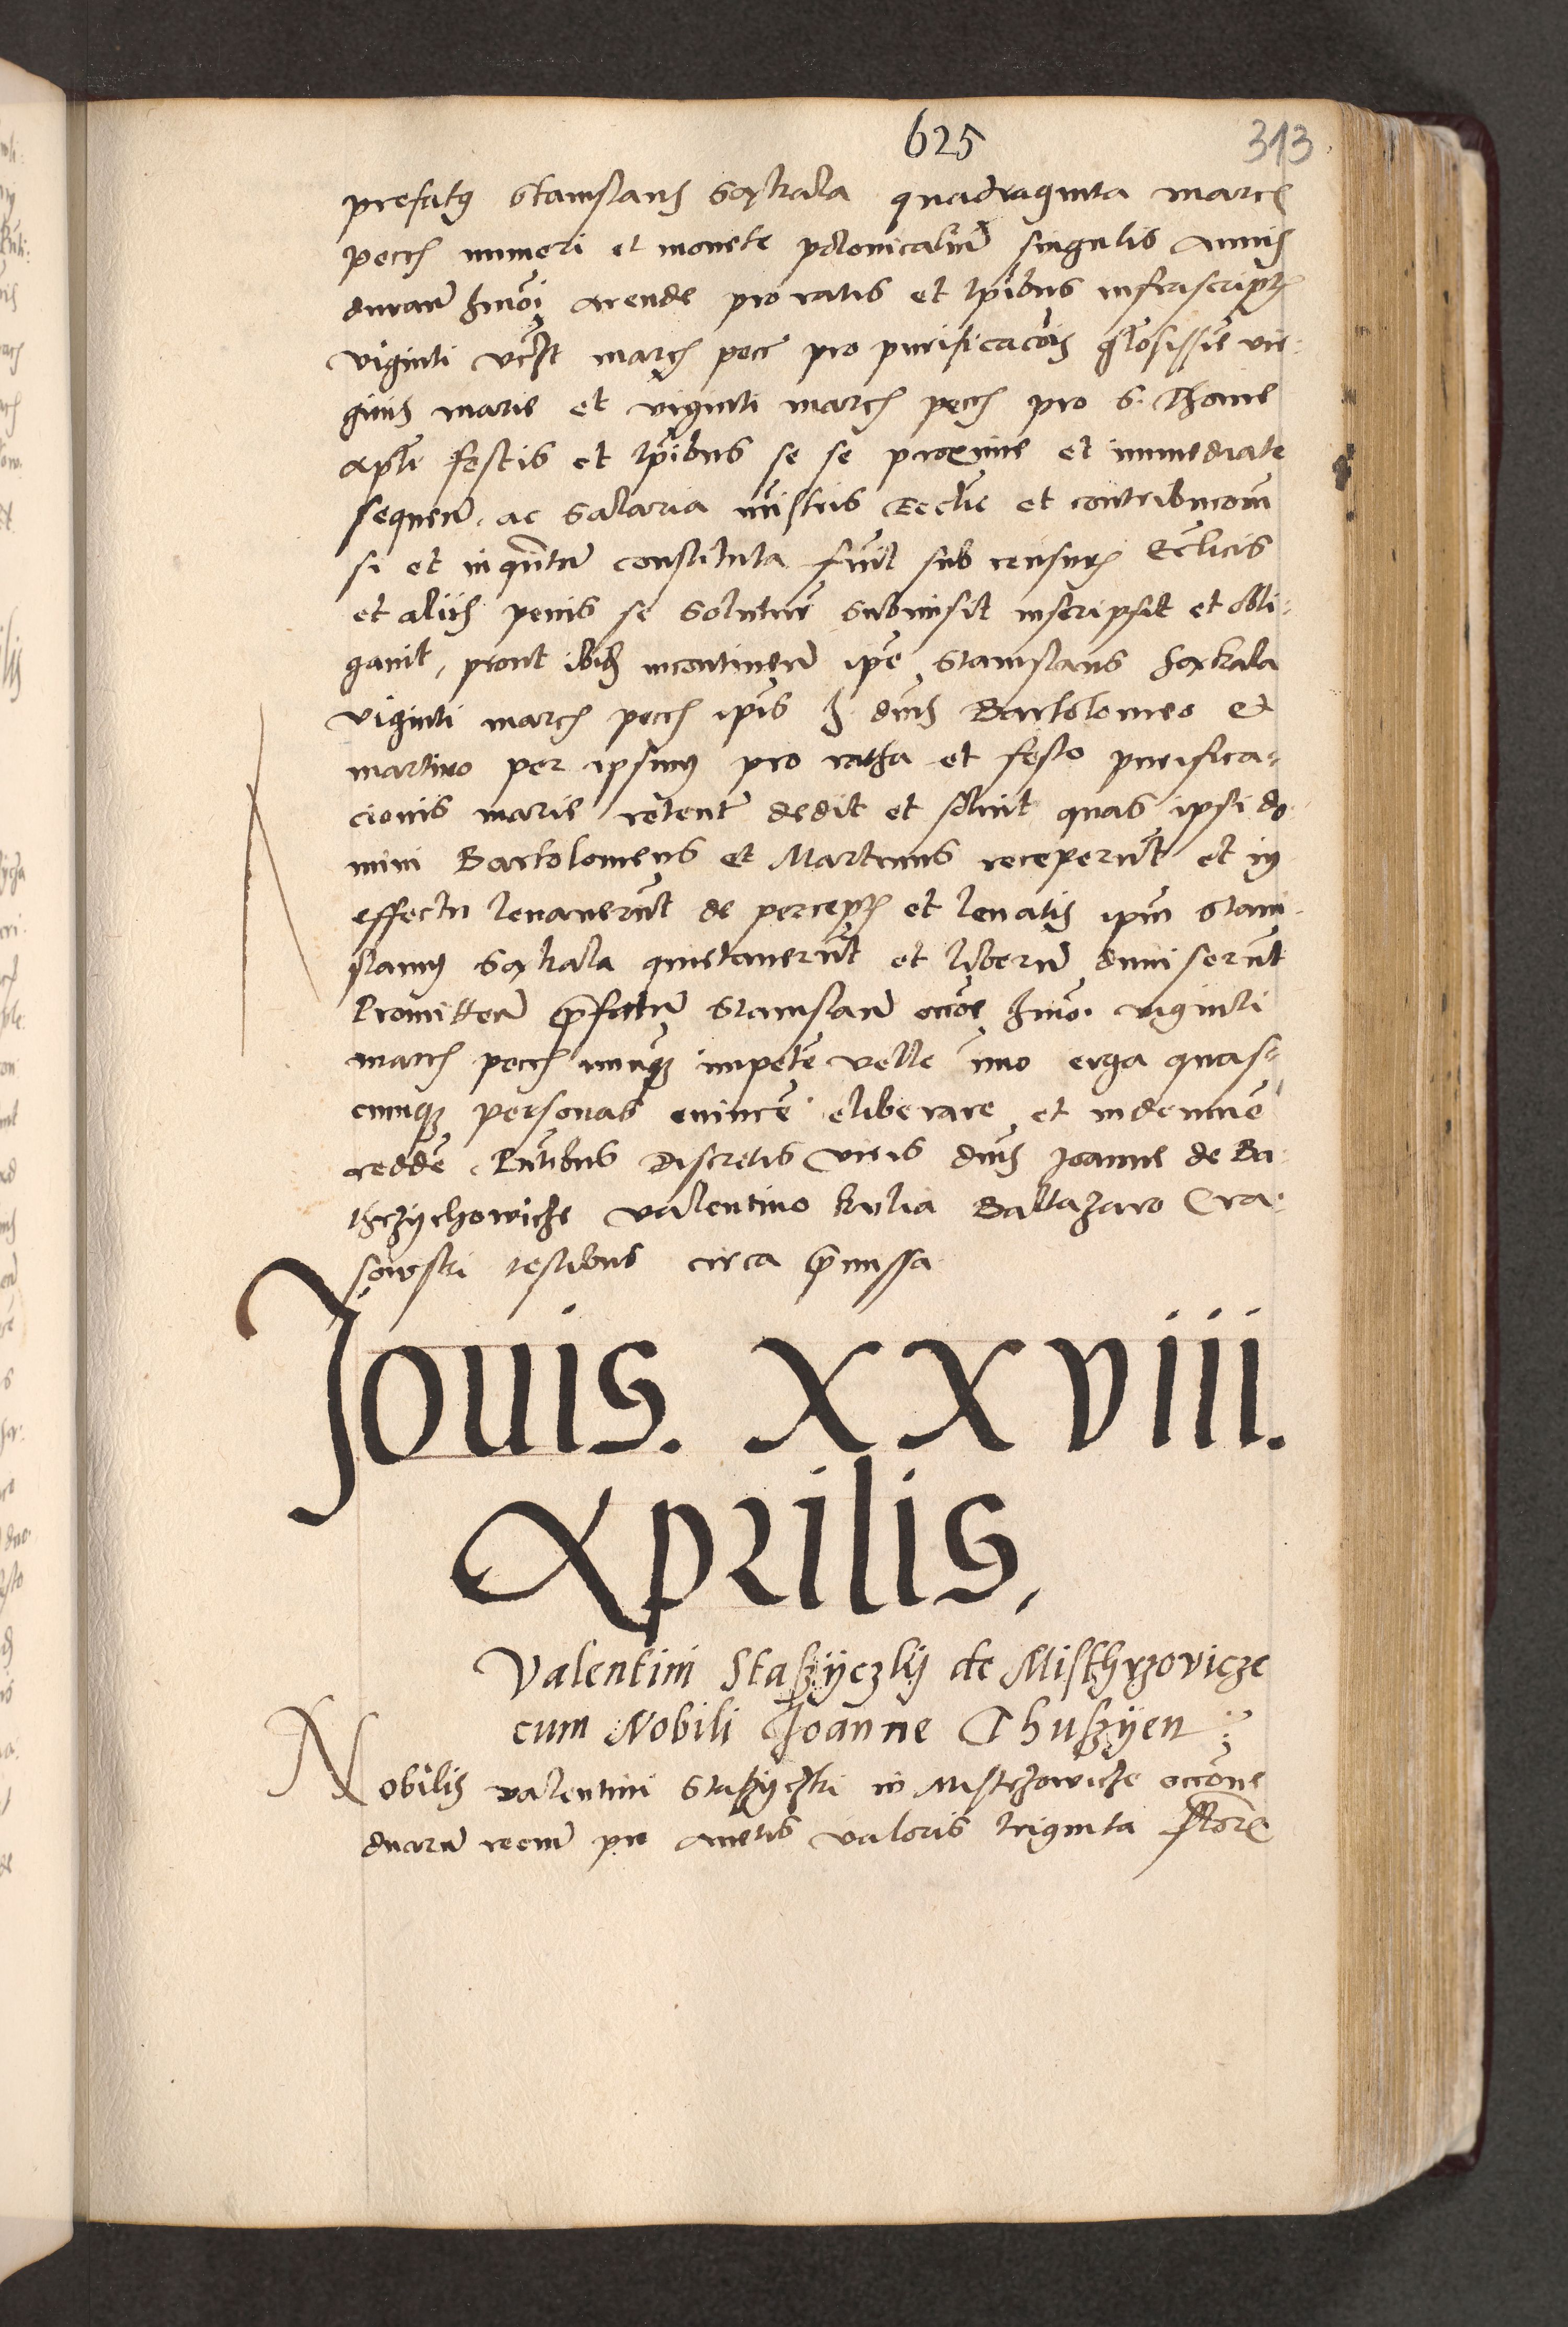 625
313
prefatus Stanislaus Soykala quadraginta marcs
pecc numeri et monete polonicalium singulis annis
duran hmoi arende pro ratis et tpibus infrascriptis
viginti vczt marcs pecc pro purificacois gloriosissie vir-
ginis marie et viginti marcs pecc pro S. Thome
apli festis et tpibus se se proxime et immediate
sequen. ac salaria mistris Ecclie et contribucom
si et inquantum constituta fuit sub censuris Ecclicis
et aliis penis se soluturum submisit inscripsit et obli-
gauit, prout ibid incontinen ipse Stanislaus Soykala
viginti marcs pecc ipsis H. dnis Bartolomeo et
martino per ipsum pro ratha et festo purifica-
cionis marie retent dedit et soluit quas ipsi do-
mini Bartolomeus et Martinus receperunt et in
effectu leuauerunt de perceptis et leuatis ipsum Stani-
slaum Soykala quietauerunt et liberum dimiserunt
Promitten prefatum Stanislaum occoe hmoi. viginti
marcs pecc nunqz impetere velle imo erga quas-
cunqz personas euincere eliberare et indemne
reddere. Pntibus Discretis viris dnis Joanne de Ba-
thczychowicze Valentino Kulia Baltazaro Cra-
sowski testibus circa premissa
Jouis. XXVIII.
Aprilis,
Valentini Staszyczky de Misthrzovicze
cum Nobili Joanne Thuszyen
Nobilis valentini Staszyczki in Mistrzowicze occone
duarum pro valoris triginta floren